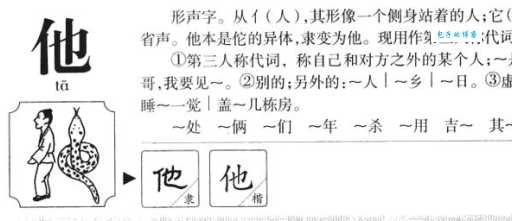 他
tā
形声字。从亻(人),其形像一个侧身站着的人;它(
省声。他本是佗的异体,隶变为他。现用作第三人称代词
包子的博客
①第三人称代词,称自己和对方之外的某个人;~是
哥,我要见~。②别的;另外的:~人|~乡|~日。③虚
睡~一觉|盖~几栋房。
~处 ~俩 ~们 ~年 ~杀 ~用 吉~ 其~
他 隶
他 楷